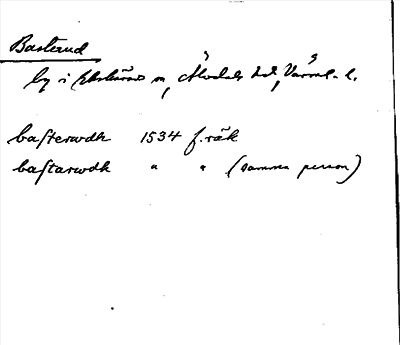 Basterud
by i Ekshärads sn, Älvdals hd, Värml. l.
basterwdh 1534 f. räk
bastarwdh " " (samma person)